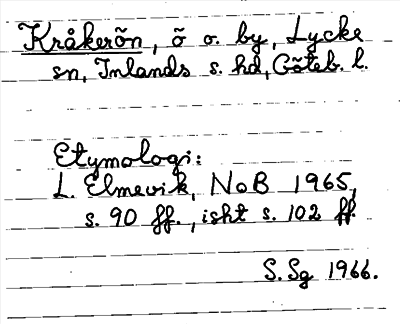 Kråkerön, ö o. by, Lycke
sn, Inlands s. hd, Göteb. l.
Etymologi:
L. Elmevik, NoB 1965,
s. 90 ff., isht s. 102 ff.
S. Sg 1966.